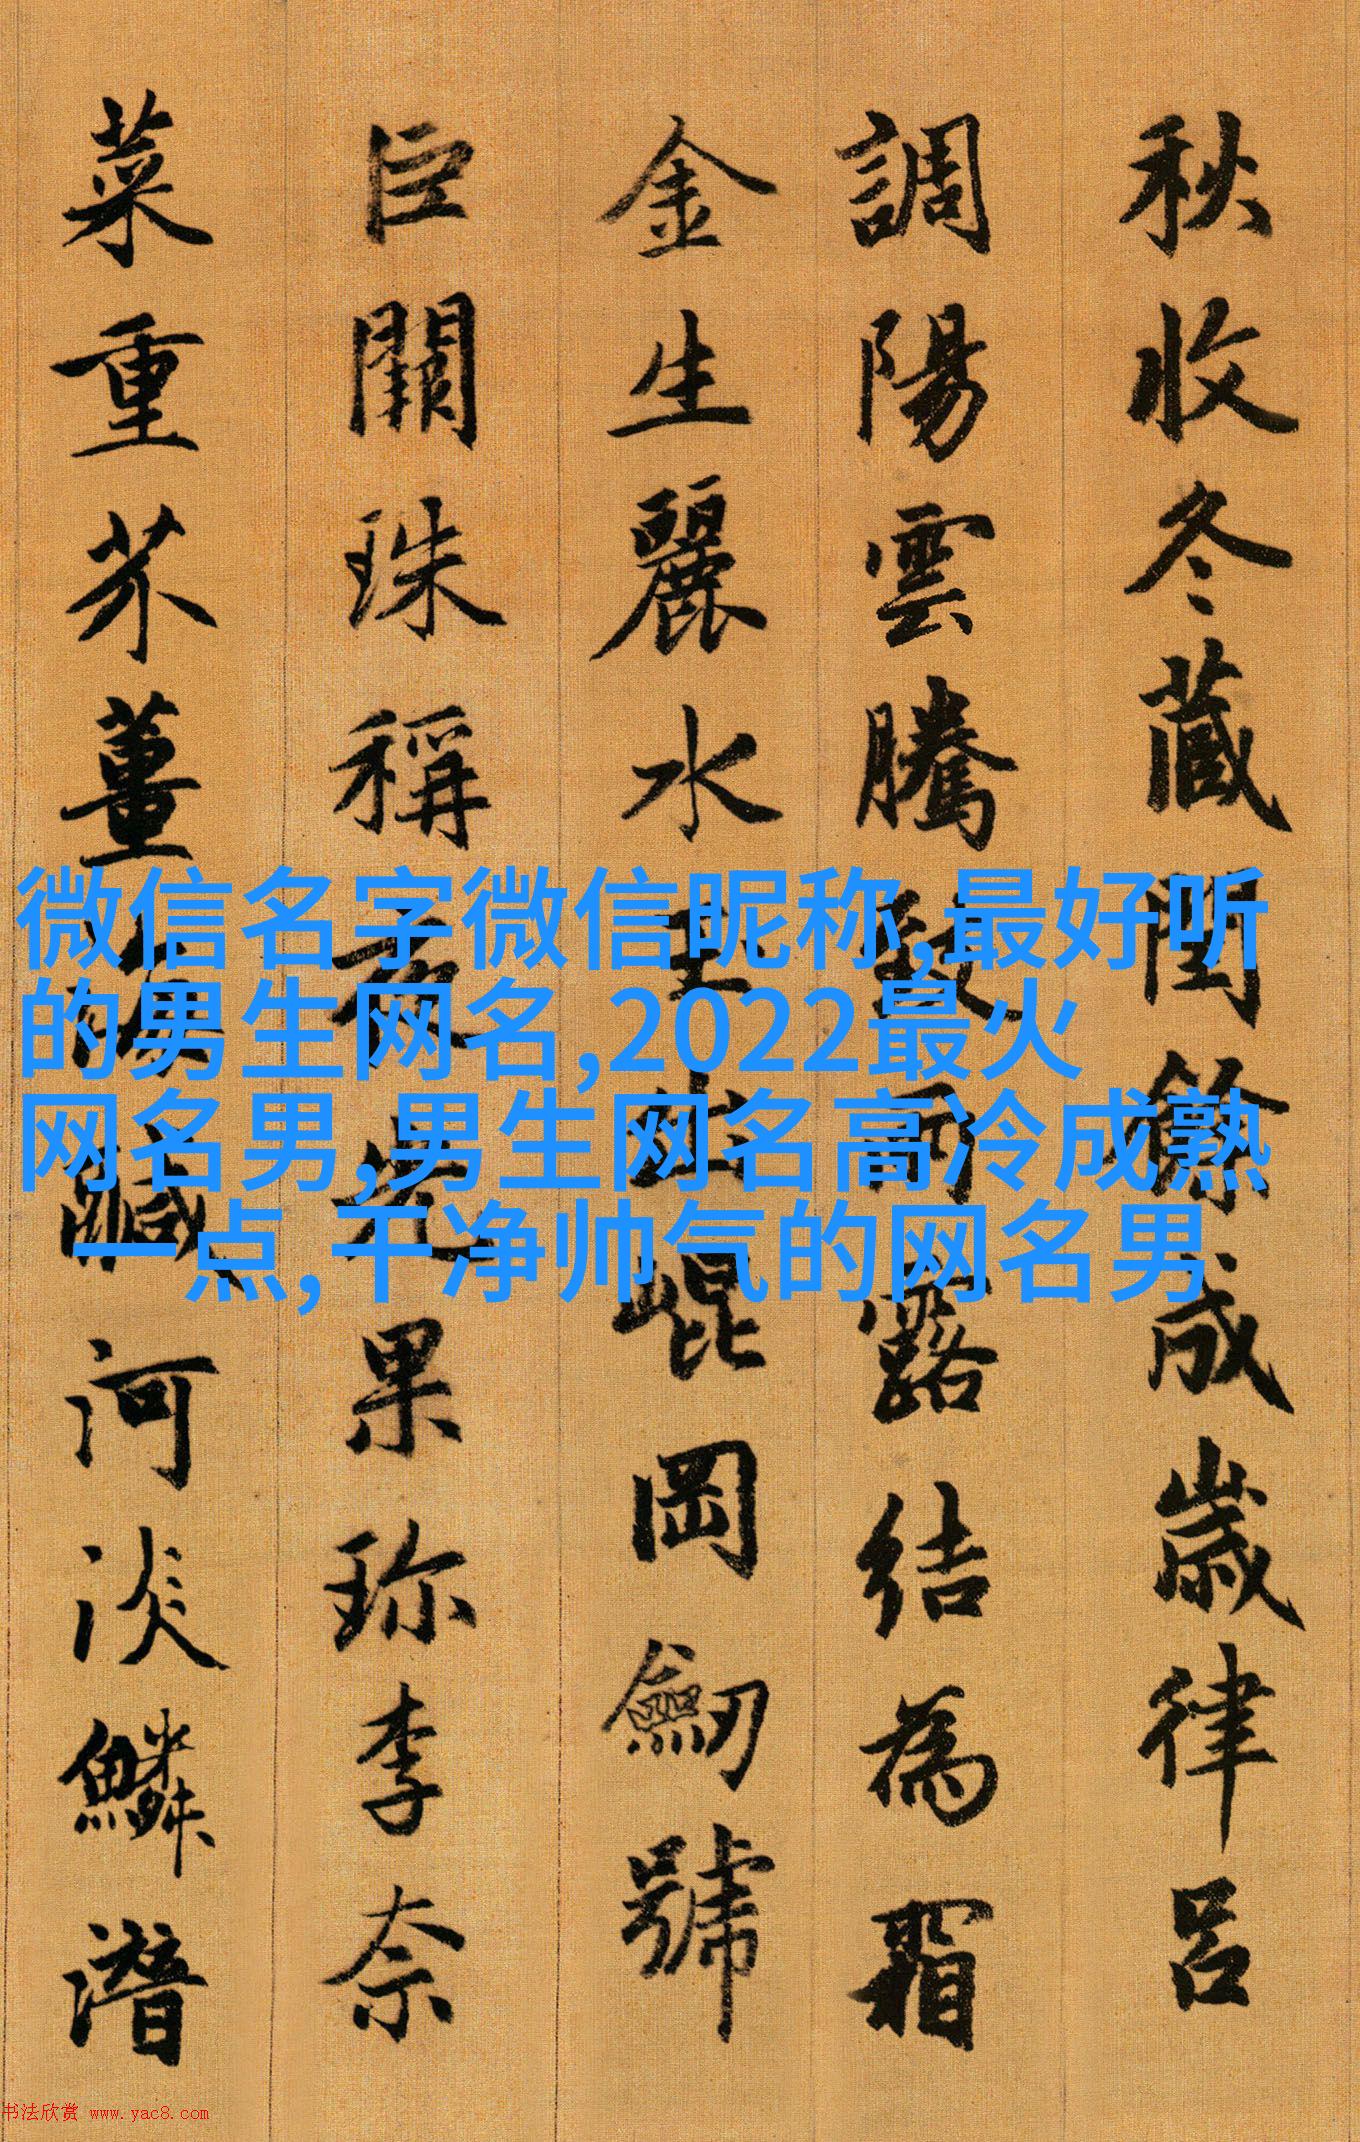 秋收冬藏閏餘成歲律呂
調陽雲騰致雨露結為霜
金生麗水玉出崐岡劒號
巨闕珠稱夜光果珍李奈
菜重芥薑海鹹河淡鱗潛
微信名字微信昵称,最好听
的男生网名,2022最火
网名男,男生网名高冷成熟
一点,干净帅气的网名男
书法欣赏 www.yac8.com